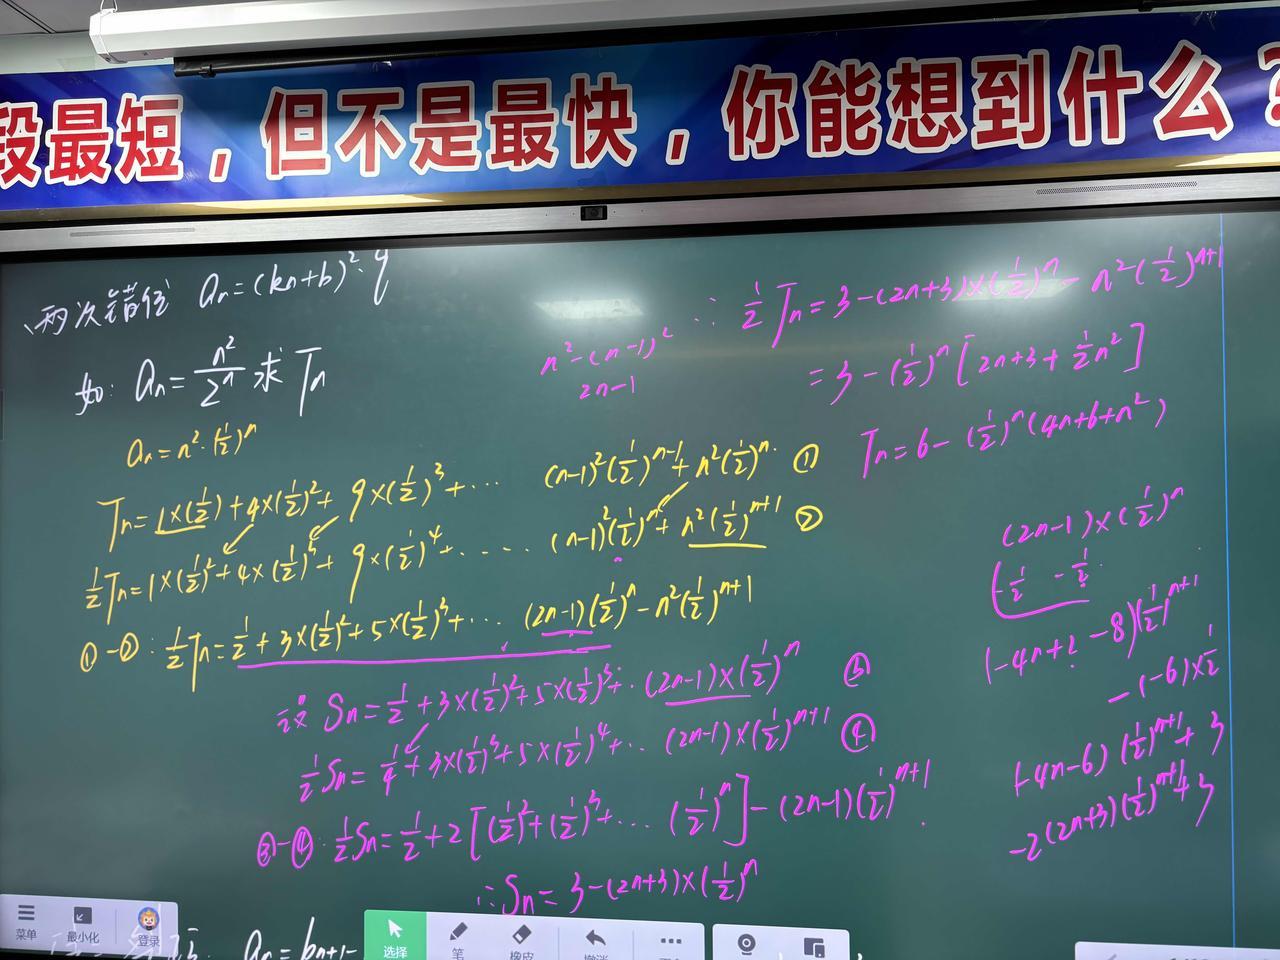 段最短，但不是最快，你能想到什么？
两次错位 an=(kn+b)²·q
如: an=n²/2ⁿ 求 Tn
an=n²·(1/2)ⁿ
Tn=1×(1/2)+4×(1/2)²+9×(1/2)³+··· (n-1)²(1/2)ⁿ⁻¹+n²(1/2)ⁿ ①
1/2Tn=1×(1/2)²+4×(1/2)³+9×(1/2)⁴+···· (n-1)²(1/2)ⁿ+n²(1/2)ⁿ⁺¹ ②
①-②: 1/2Tn=1/2+3×(1/2)²+5×(1/2)³+··· (2n-1)(1/2)ⁿ-n²(1/2)ⁿ⁺¹
设 Sn=1/2+3×(1/2)²+5×(1/2)³+··(2n-1)×(1/2)ⁿ ③
1/2Sn=1/4+3×(1/2)³+5×(1/2)⁴+·· (2n-1)×(1/2)ⁿ⁺¹ ④
③-④: 1/2Sn=1/2+2[(1/2)²+(1/2)³+···(1/2)ⁿ]-(2n-1)(1/2)ⁿ⁺¹
∴Sn=3-(2n+3)×(1/2)ⁿ
n²-(n-1)²
2n-1
∴ 1/2Tn=3-(2n+3)×(1/2)ⁿ-n²(1/2)ⁿ⁺¹
=3-(1/2)ⁿ[2n+3+1/2n²]
Tn=6-(1/2)ⁿ(4n+6+n²)
(2n-1)×(1/2)ⁿ
(-4n+2-8)(1/2)ⁿ⁺¹
-(-6)×1/2
(-4n-6)(1/2)ⁿ⁺¹+3
-2(2n+3)(1/2)ⁿ⁺¹+3
an=bn+1-
菜单
最小化
登录
选择
笔
橡皮
撤消